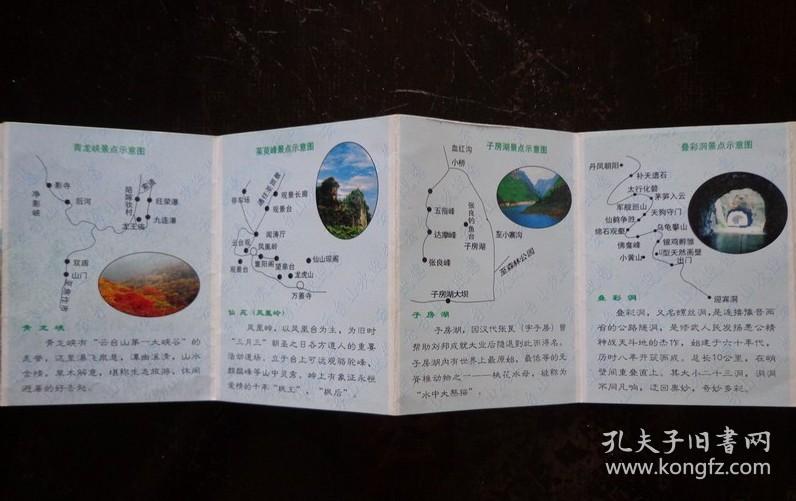 青龙峡景点示意图
净影峡
影寺
后河
陪嫁妆村
旺荣瀑
九连瀑
龙王庙
双庙
山门
至焦作方
青龙峡
青龙峡有“云台山第一大峡谷”的
美誉，这里瀑飞泉悬，潭幽溪清，山水
交情，草木解意，堪称生态旅游、休闲
避暑的好去处。
茱萸峰景点示意图
停车场
通往茱萸景
观景长廊
观景台
闻涛厅
云台观
凤凰岭
重阳阁
仙山琼阁
观景台
望鼎台
龙虎山
万善寺
仙苑（凤凰岭）
凤凰岭，以凤凰台为主，为旧时
“三月三”朝圣之日各方道人的重要
活动道场，立于台上可远观骆驼峰、
麒麟峰等山中灵秀。岭上有象征永恒
爱情的千年“枫王”，“枫后”。
子房湖景点示意图
血红沟
小桥
五指峰
达摩峰
张良峰
张良钓鱼台
子房湖
至小寨沟
至森林公园
子房湖大坝
子房湖
子房湖，因汉代张良（字子房）曾
帮助刘邦成就大业后隐退到此而得名。
子房湖内有世界上最原始、最低等的无
脊椎动物之一——桃花水母，被称为
“水中大熊猫”。
叠彩洞景点示意图
丹凤朝阳
补天遗石
太行化碧
茅笋入云
军舰巡山
天狗守门
仙鹤争胜
乌龟攀山
绵石观蛩
佛龛峰
锦鸡孵雏
小黄山
U型天然画壁
出门
迎宾洞
叠彩洞
叠彩洞，又名螺丝洞，是连接豫晋两
省的公路隧洞，是修武人民发扬愚公精
神战天斗地的杰作，始建于六十年代，
历时八年开凿而成，总长10公里，在峭
壁间重叠直上，其大小二十三洞，洞洞
不同凡响，迂回奥妙，奇妙多彩。
孔夫子旧书网
www.kongfz.com